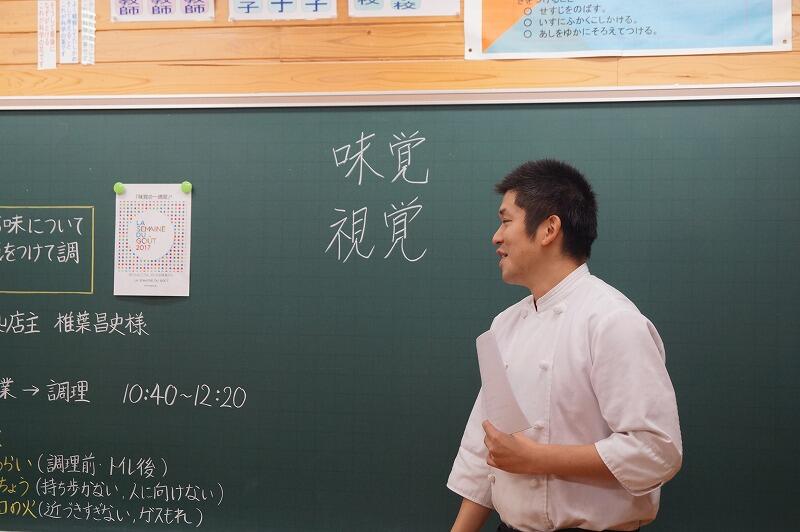 教師 教師 教師
子 子 子
校 校
○ せすじをのばす。
○ いすにふかくこしかける。
○ あしをゆかにそろえてつける。
味覚
視覚
「味覚の一週間」
LA
SEMAINE
DU
GOÛT
2017
味について
をつけて調
店主 椎葉昌史様
業 → 調理 10:40~12:20
らい(調理前・トイレ後)
ちょう(持ち歩かない、人に向けない)
口の火(近づきすぎない、ガスもれ)